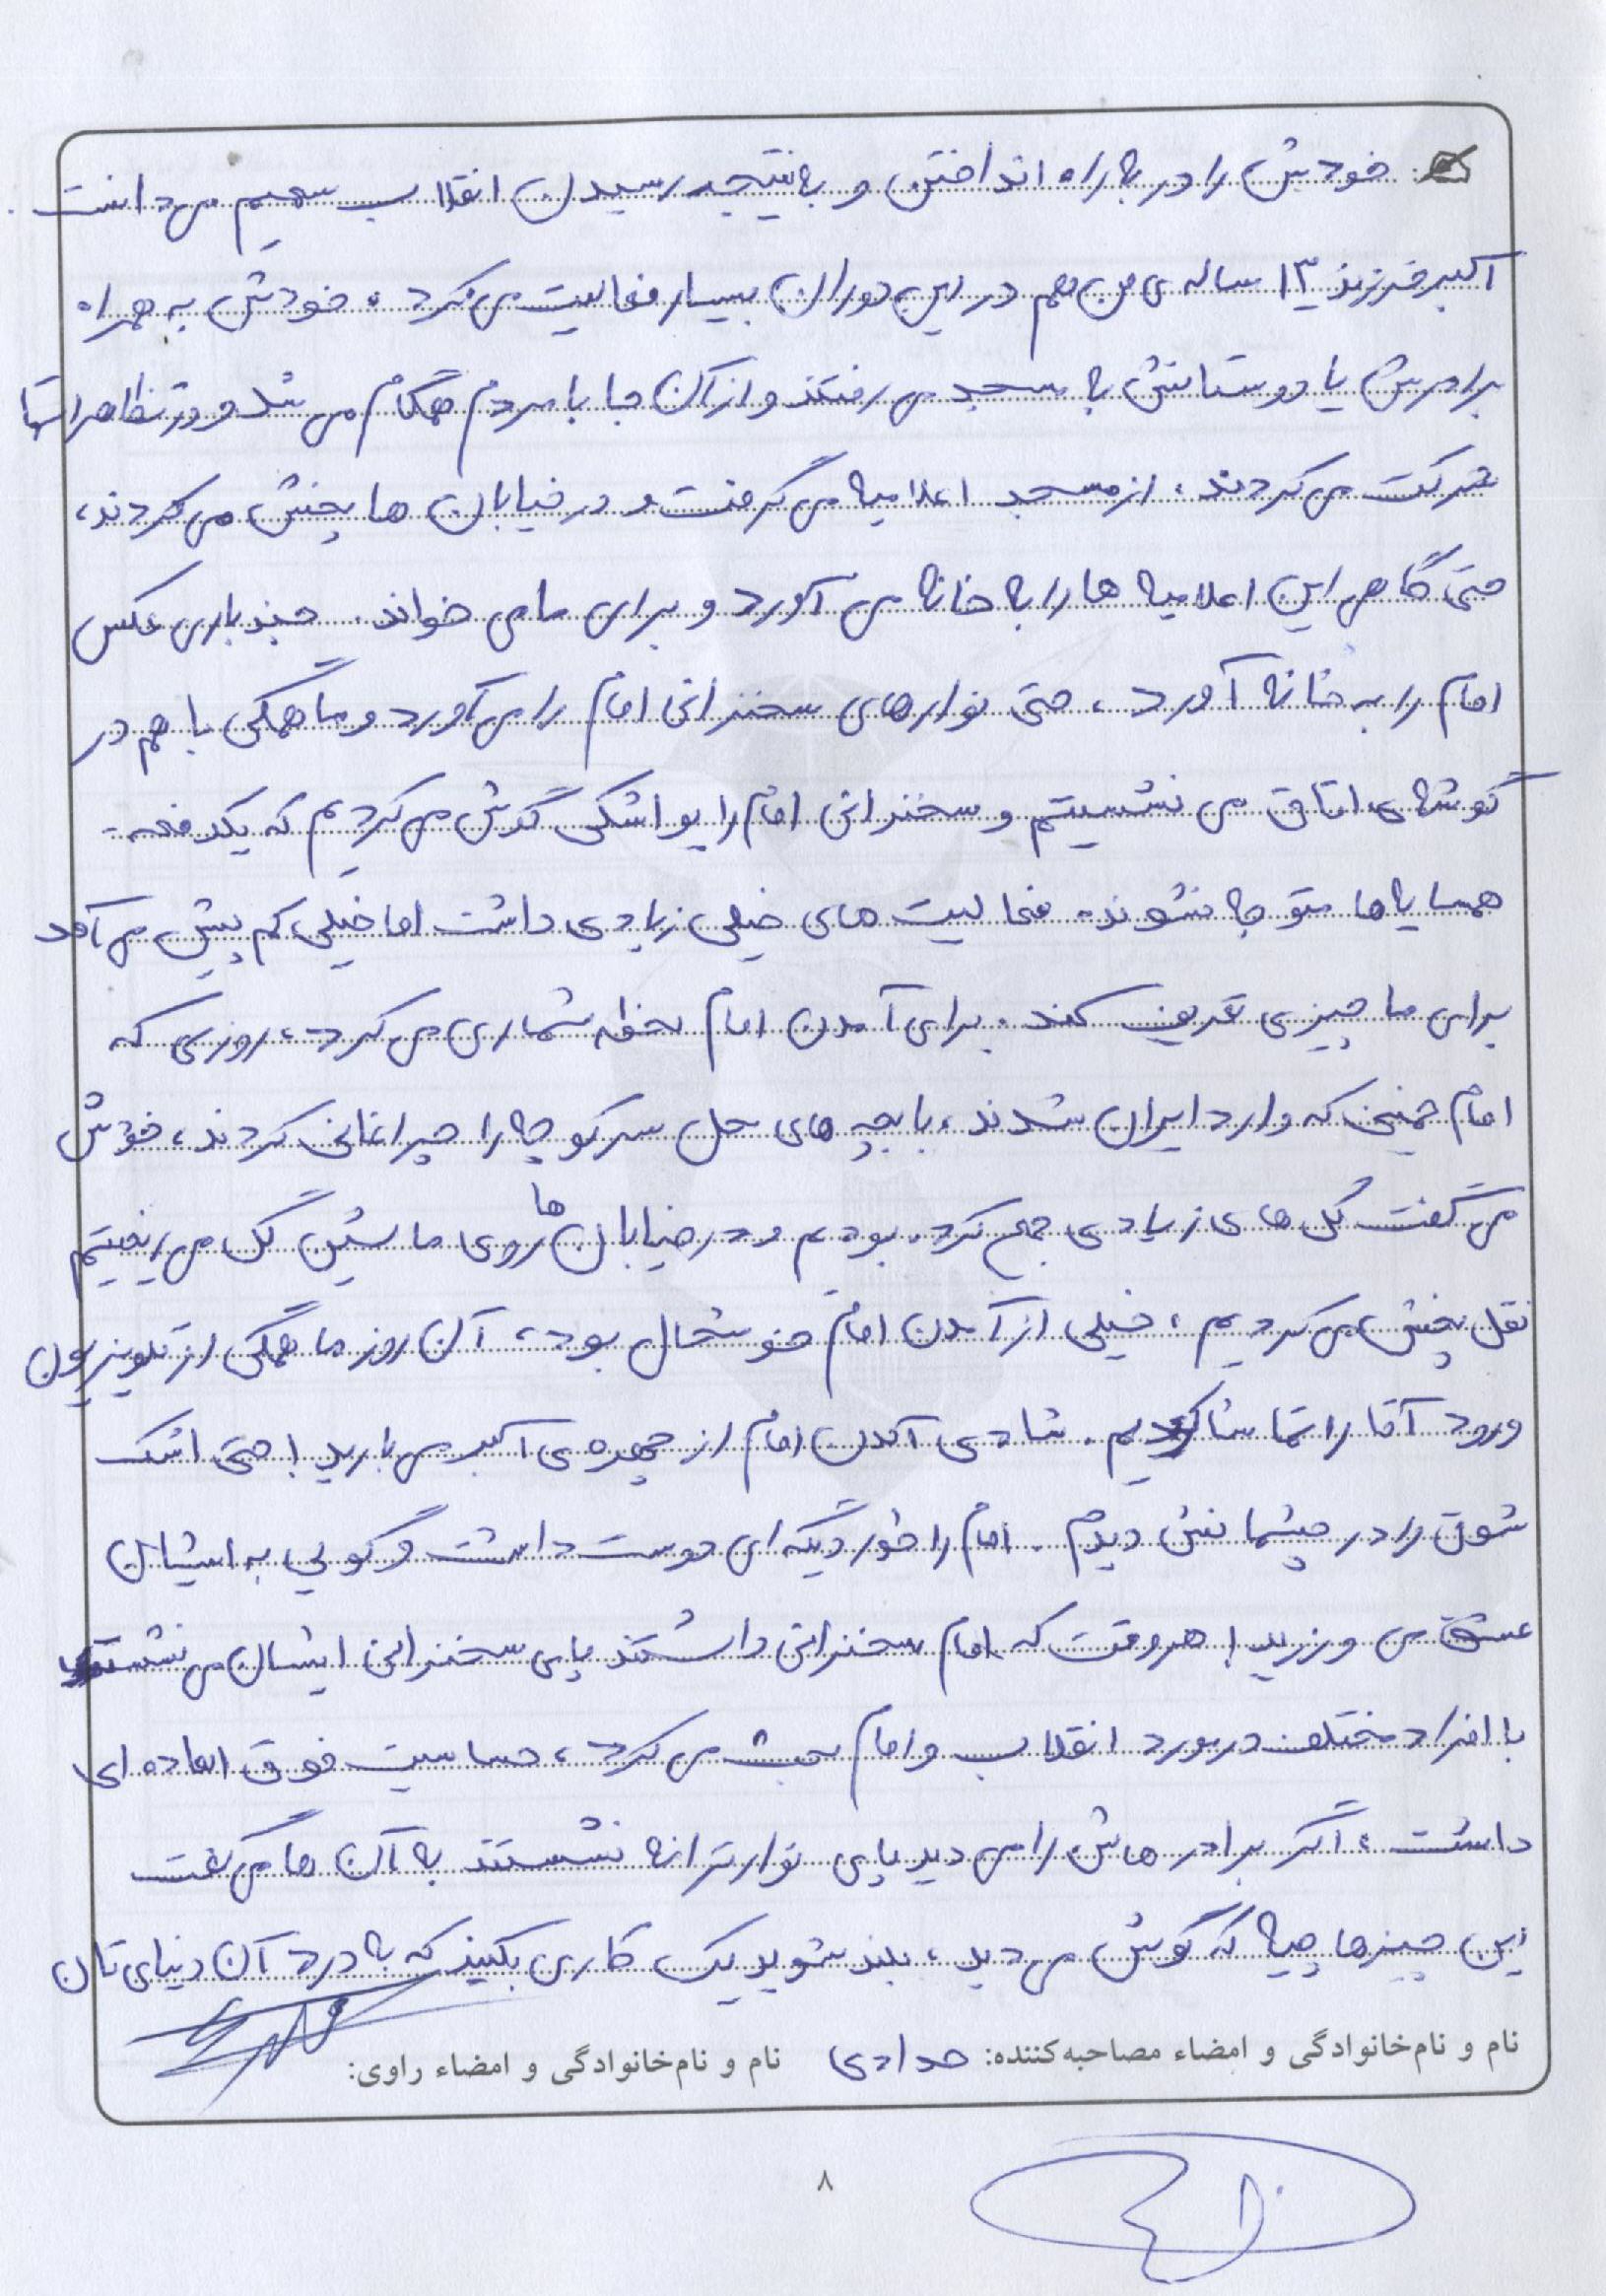 خودش را در به راه انداختن و به نتیجه رسیدن انقلاب سهیم می دانست.
اکبر فرزند ۱۳ ساله ی من هم در این دوران بسیار فعالیت می کرد، خودش به همراه
برادرش یا دوستانش به مسجد می رفتند و از آن جا با مردم همگام می شد و در تظاهراتها
شرکت می کردند، از مسجد اعلامیه می گرفت و در خیابان ها پخش می کردند،
حتی گاهی این اعلامیه ها را به خانه می آورد و برای ما می خواند. چند باری عکس
امام را به خانه آورد، حتی نوارهای سخنرانی امام را می آورد و ما همگی با هم در
گوشه ی اتاق می نشستیم و سخنرانی امام را یواشکی گوش می کردیم که یکدفعه
همسایه ها متوجه نشوند. فعالیت های خیلی زیادی داشت اما خیلی کم پیش می آمد
برای ما چیزی تعریف کند. برای آمدن امام لحظه شماری می کرد، روزی که
امام خمینی که وارد ایران شدند، با بچه های محل سر کوچه را چراغانی کردند، خودش
می گفت گل های زیادی جمع کرده بودیم و در خیابان ها روی ماشین گل می ریختیم
نقل پخش می کردیم، خیلی از آمدن امام خوشحال بود، آن روز ما همگی از تلویزیون
ورود آقا را تماشا کردیم. شادی آمدن امام از چهره ی اکبر می بارید! حتی اشک
شوق را در چشمانش دیدم. امام را طور دیگه ای دوست داشت و گویی به ایشان
عشق می ورزید! هر وقت که امام سخنرانی داشتند پای سخنرانی ایشان می نشست
با افراد مختلف در مورد انقلاب و امام بحث می کرد، حساسیت فوق العاده ای
داشت، اگر برادر هاش را می دید پای نوار ترانه نشستند به آن ها می گفت
این چیزها چیه که گوش می دید، بلند شوید یک کاری بکنید که به درد آن دنیای تان
نام و نام خانوادگی و امضاء مصاحبه کننده: حدادی نام و نام خانوادگی و امضاء راوی:
۸